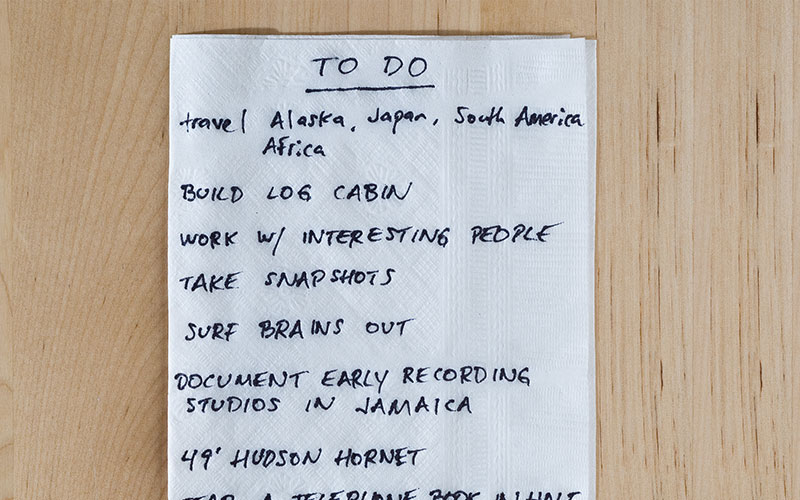 TO DO
travel Alaska, Japan, South America
Africa
BUILD LOG CABIN
WORK W/ INTERESTING PEOPLE
TAKE SNAPSHOTS
SURF BRAINS OUT
DOCUMENT EARLY RECORDING
STUDIOS IN JAMAICA
49' HUDSON HORNET
TEAR A TELEPHONE BOOK IN HALF